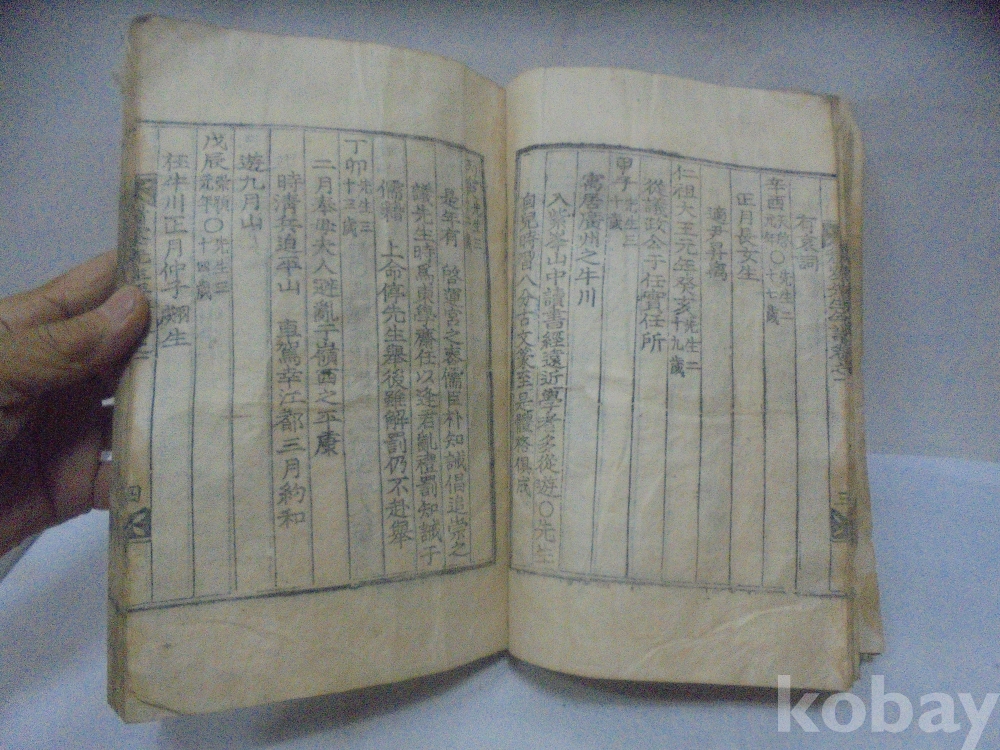 有哀詞
辛酉天啓元年〇先生二十七歲
正月長女生
適尹昇离
仁祖大王元年癸亥先生二十九歲
從議政公于任實任所
甲子先生三十歲
寓居廣州之牛川
入紫峯山中讀書經遠近學者多從遊〇先生
自兒時習八分古文篆至是體格俱成
三
先生三
是年有 啓運宮之喪儒臣朴知誡倡追崇之
議先生時爲東學齋任以逢君亂禮罰知誡于
儒籍 上命停先生舉後雖解罰仍不赴舉
丁卯先生三十三歲
二月奉母夫人避亂于嶺西之平康
時清兵迫平山 車駕幸江都三月約和
遊九月山
戊辰崇禎元年〇先生三十四歲
在牛川正月仲子翧生
四
kobay